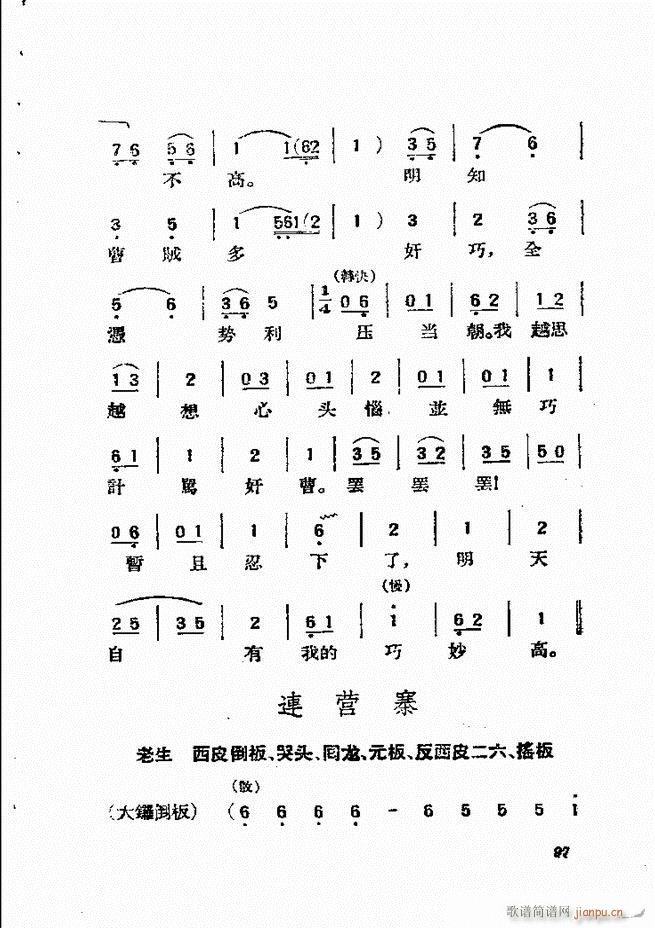 7 6 5 6 | 1 1(62 | 1 ) 3 5 | 7 6 |
不高。 明知
3 5 | 1 561(2 | 1 ) 3 | 2 3 6 |
曹賊多 奸巧,全
(轉快)
5 6 | 3 6 5 | 1/4 0 6 | 0 1 | 6 2 | 1 2 |
憑 势利 压当朝。我越思
1 3 | 2 | 0 3 | 0 1 | 2 | 0 1 | 0 1 | 1 |
越想心头惱並無巧
6 1 | 1 | 2 | 1 | 3 5 | 3 2 | 3 5 | 5 0 |
計罵奸曹。罢罢罢!
0 6 | 0 1 | 1 | 6 | 2 | 1 | 2 |
暫且忍下了,明天
(慢)
2 5 | 3 5 | 2 | 6 1 | 1 | 6 2 | 1 ‖
自有我的巧妙高。
連营寨
老生 西皮倒板、哭头、囘龙、元板、反西皮二六、搖板
(散)
(大鑼倒板) (6 6 6 6 - 6 5 5 5 1
97
歌谱简谱网 jianpu.cn